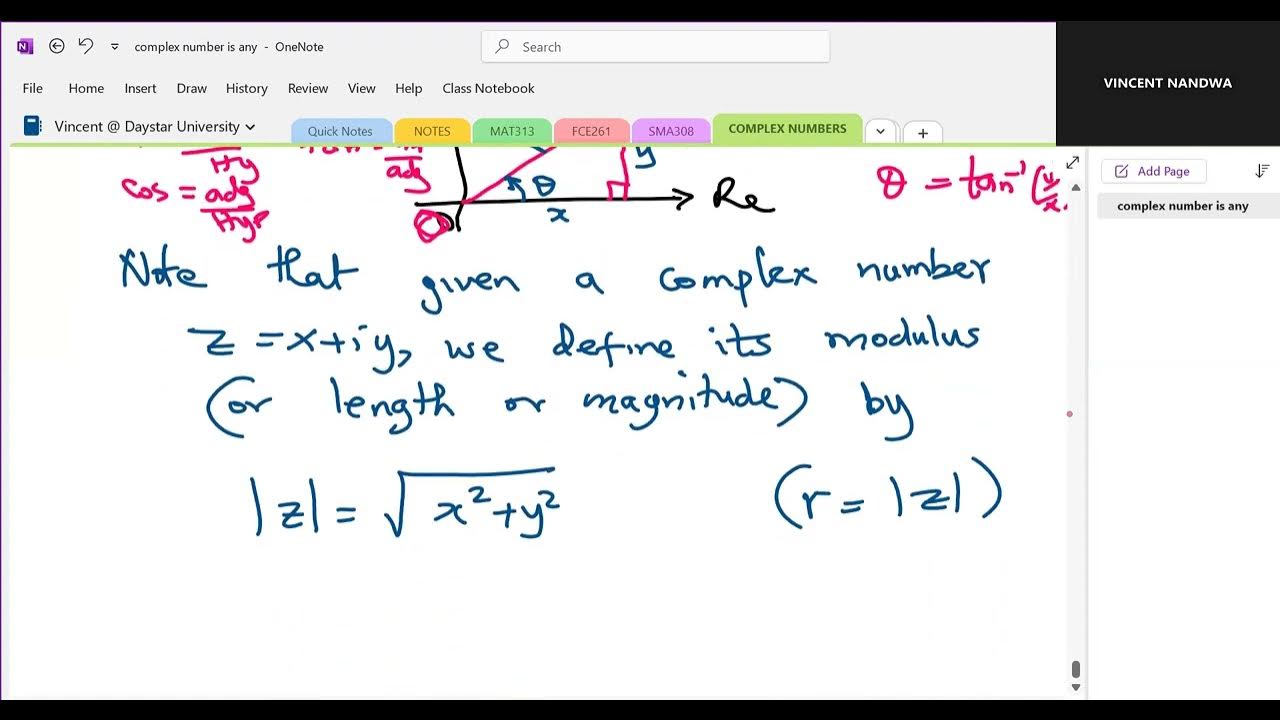 complex number is any - OneNote
Search
VINCENT NANDWA
File Home Insert Draw History Review View Help Class Notebook
Vincent @ Daystar University
Quick Notes NOTES MAT313 FCE261 SMA308 COMPLEX NUMBERS
Add Page
complex number is any
Hy
adj
y
cos = adj/Hyp
θ
x
Re
θ = tan⁻¹(y/x
Note that given a complex number
z = x+iy, we define its modulus
(or length or magnitude) by
|z| = √x²+y² (r = |z|)